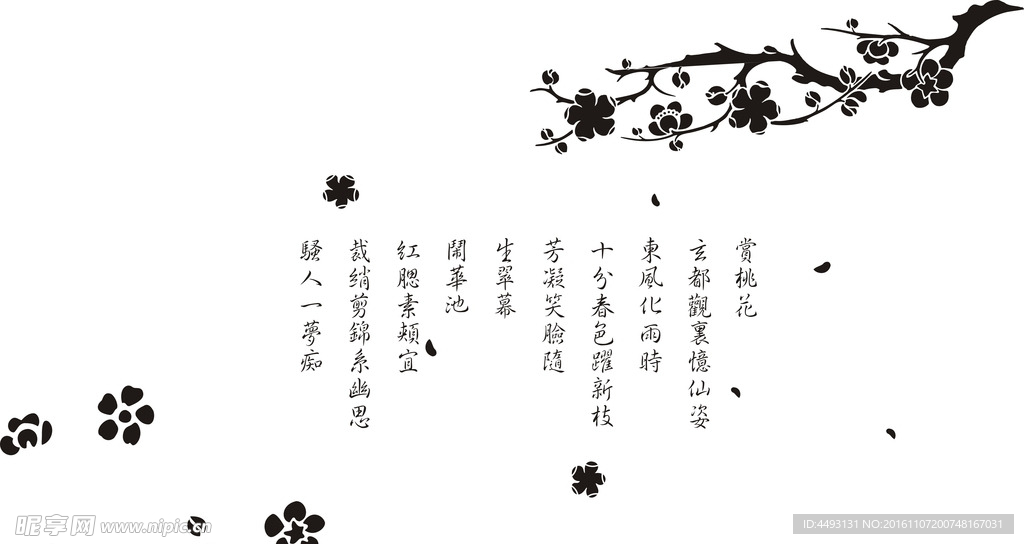 賞桃花
玄都觀裏憶仙姿
東風化雨時
十分春色躍新枝
芳凝笑臉隨
生翠幕
鬧華池
紅腮素頰宜
裁綃剪錦系幽思
騷人一夢痴
昵享网 www.nipic.cn
ID:4493131 NO:20161107200748167031